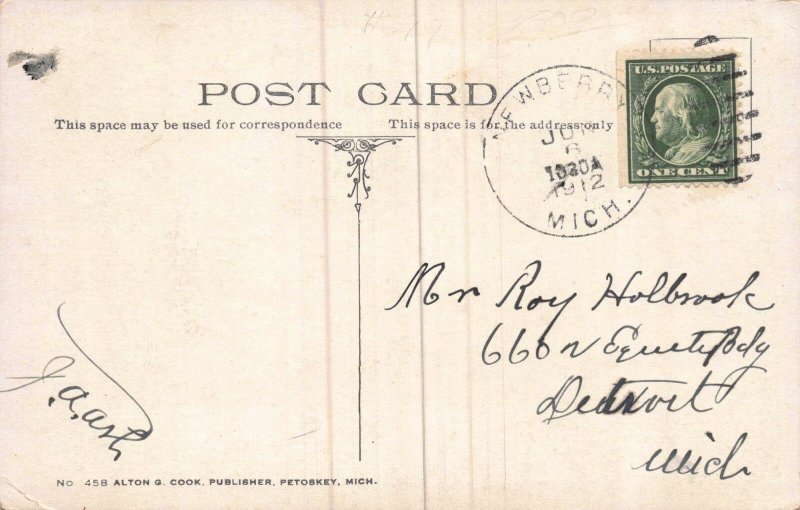 POST CARD
This space may be used for correspondence
This space is for the address only
NEWBERRY
JUN
6
1030A
1912
MICH.
U.S. POSTAGE
ONE CENT
Mr Roy Holbrook
660 Equity Bdg
Detroit
Mich
J.A. Ash
No 458 ALTON G. COOK, PUBLISHER, PETOSKEY, MICH.